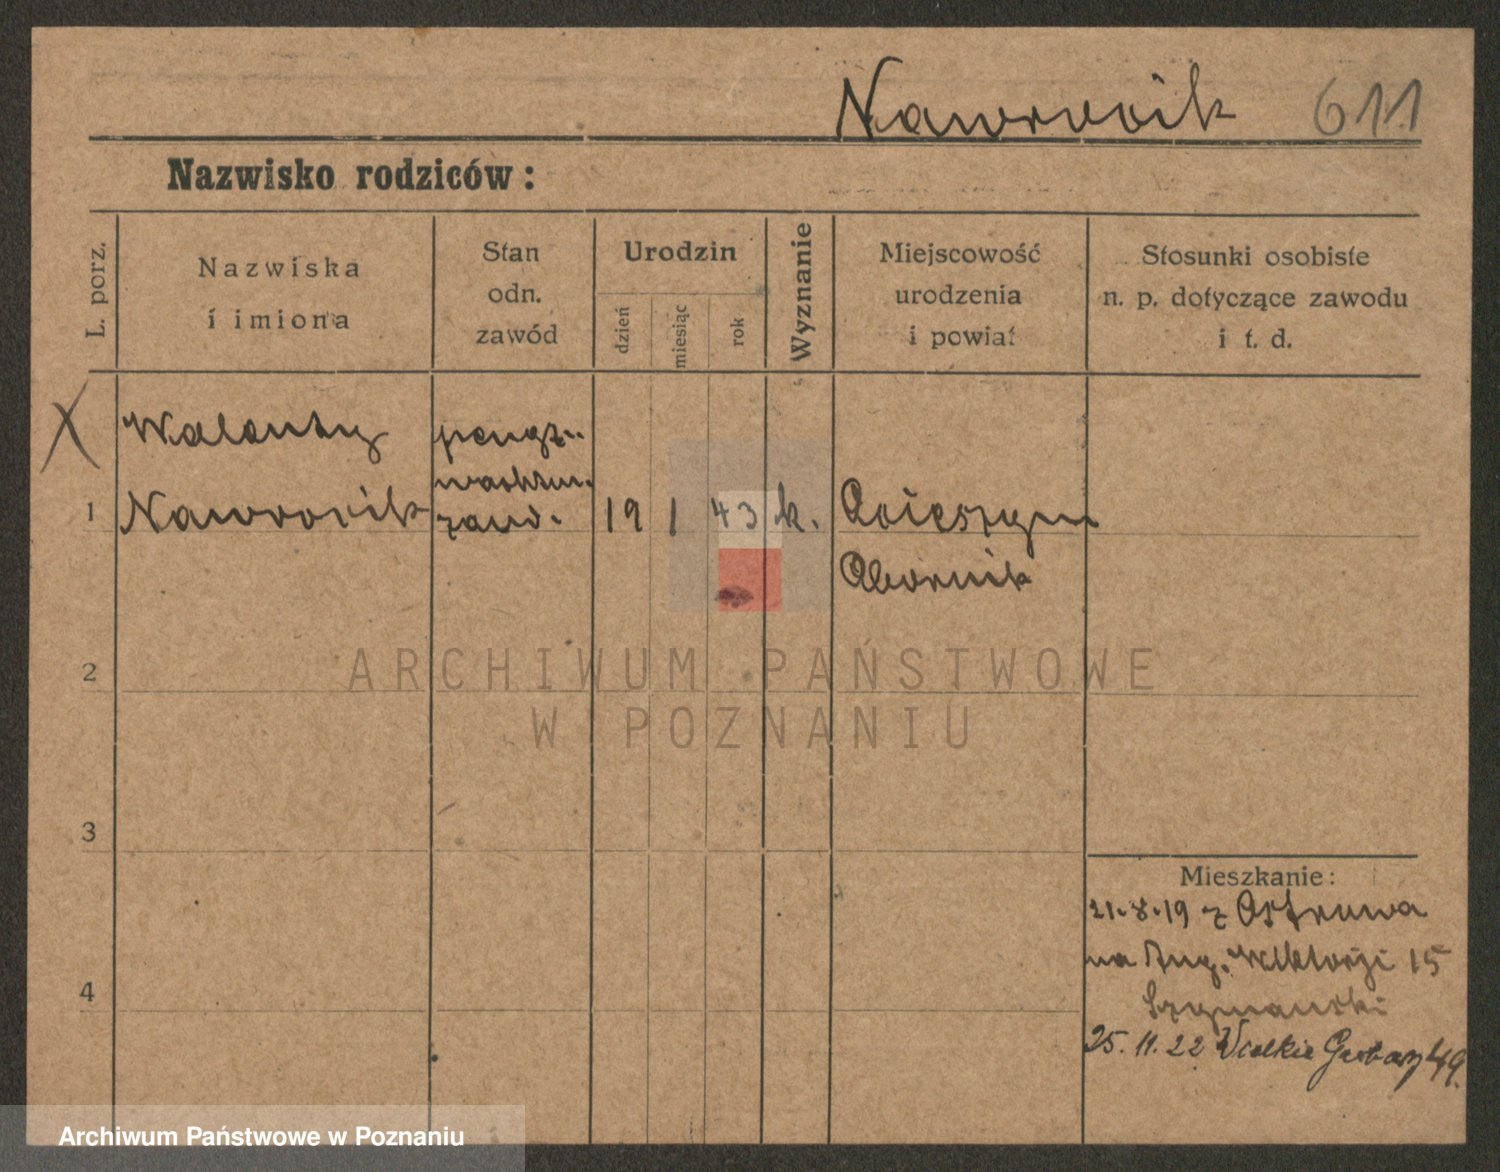 Nawrocik 611
Nazwisko rodziców:
L. porz.
Nazwiska
i imiona
Stan
odn.
zawód
Urodzin
dzień
miesiąc
rok
Wyznanie
Miejscowość
urodzenia
i powiat
Stosunki osobiste
n. p. dotyczące zawodu
i t. d.
X
Walenty
1 Nawrocik
19 1 43 k.
Obornik
2
3
4
Mieszkanie:
21.8.19 z Ostrowa
na Aug. Wiktorji 15
Szymański
25.11.22 Wielkie Garbary 49.
ARCHIWUM PAŃSTWOWE
W POZNANIU
Archiwum Państwowe w Poznaniu